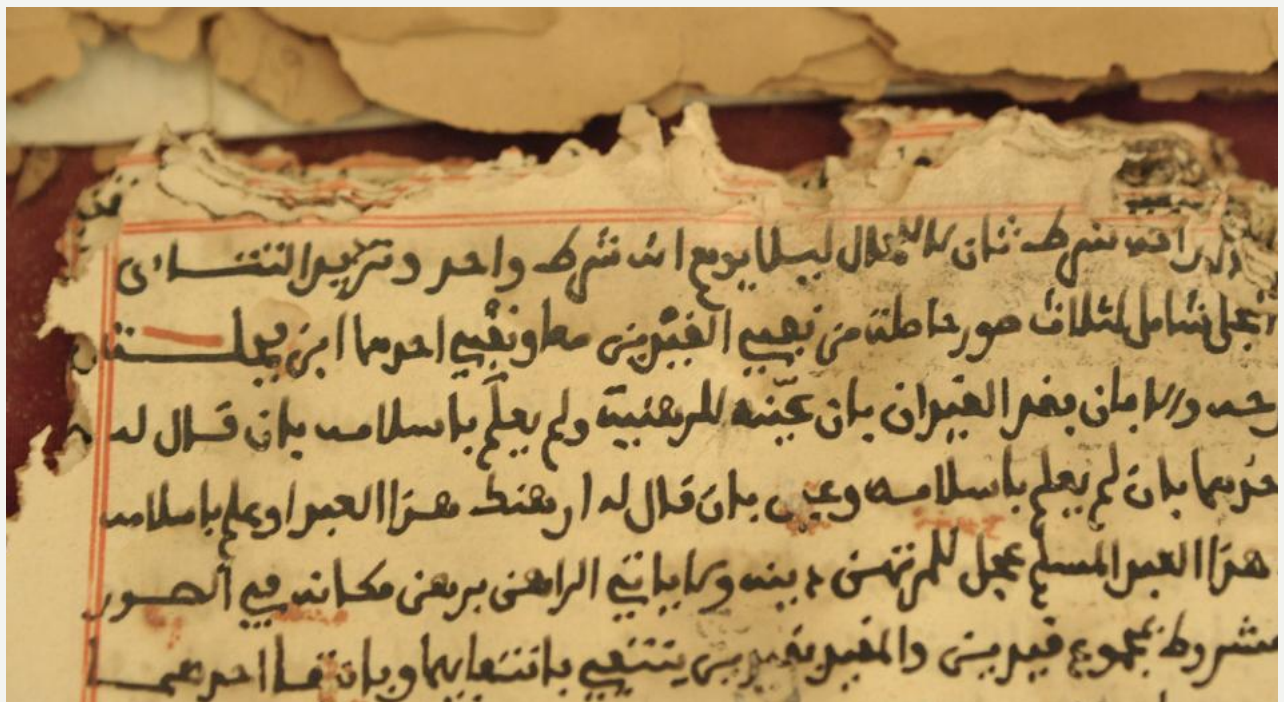 شرط ثان ليلا يوهم انه شرط واحد وتقرير التتائي
شامل لثلاث صور حاصلة من نفي القيدين معا ونفي احدهما
والا بان يفقد القيدان بان عينه للرهنية ولم يعلم باسلامه بان قال له
بان لم يعلم باسلامه وعين بان قال له ارهنك هذا العبد او علم باسلامه
هذا العبد المسلم عجل للمرتهن دينه ولا ياتي الراهن برهن مكانه في الصور
مشروط بمجموع قيدين والمقيد بقيدين ينتفي بانتفايهما وبانتفا احدهما